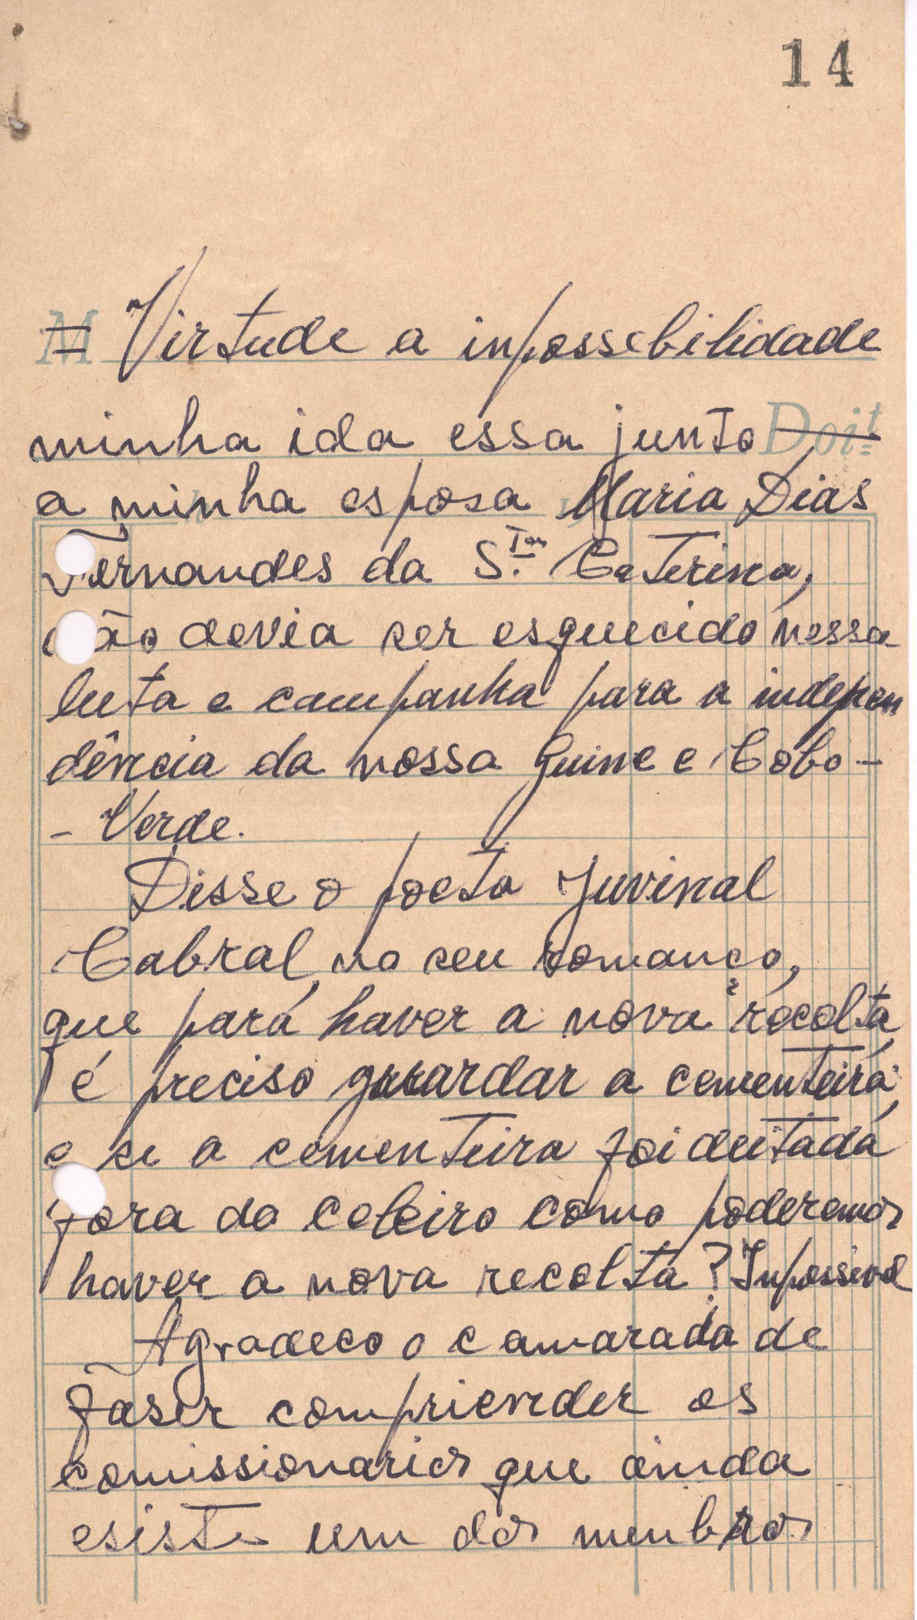 14
= Virtude a inpossebilidade
minha ida essa junto Doit
a minha esposa Maria Dias
Fernandes da S.ta Caterina,
não devia ser esquecido nessa
luta e campanha para a indepen
dência da nossa Guine e Cobo-
- Verde.
Disse o poeta Juvinal
Cabral, no seu romanço,
que pará haver a nova recolta
é preciso guardar a cementeirá
e se a cementeira foi deitada
fora do celeiro como poderemos
haver a nova recolta? Inpossivel
Agradeco o camarada de
faser compriender os
comissionarios que ainda
esiste um dos menbros